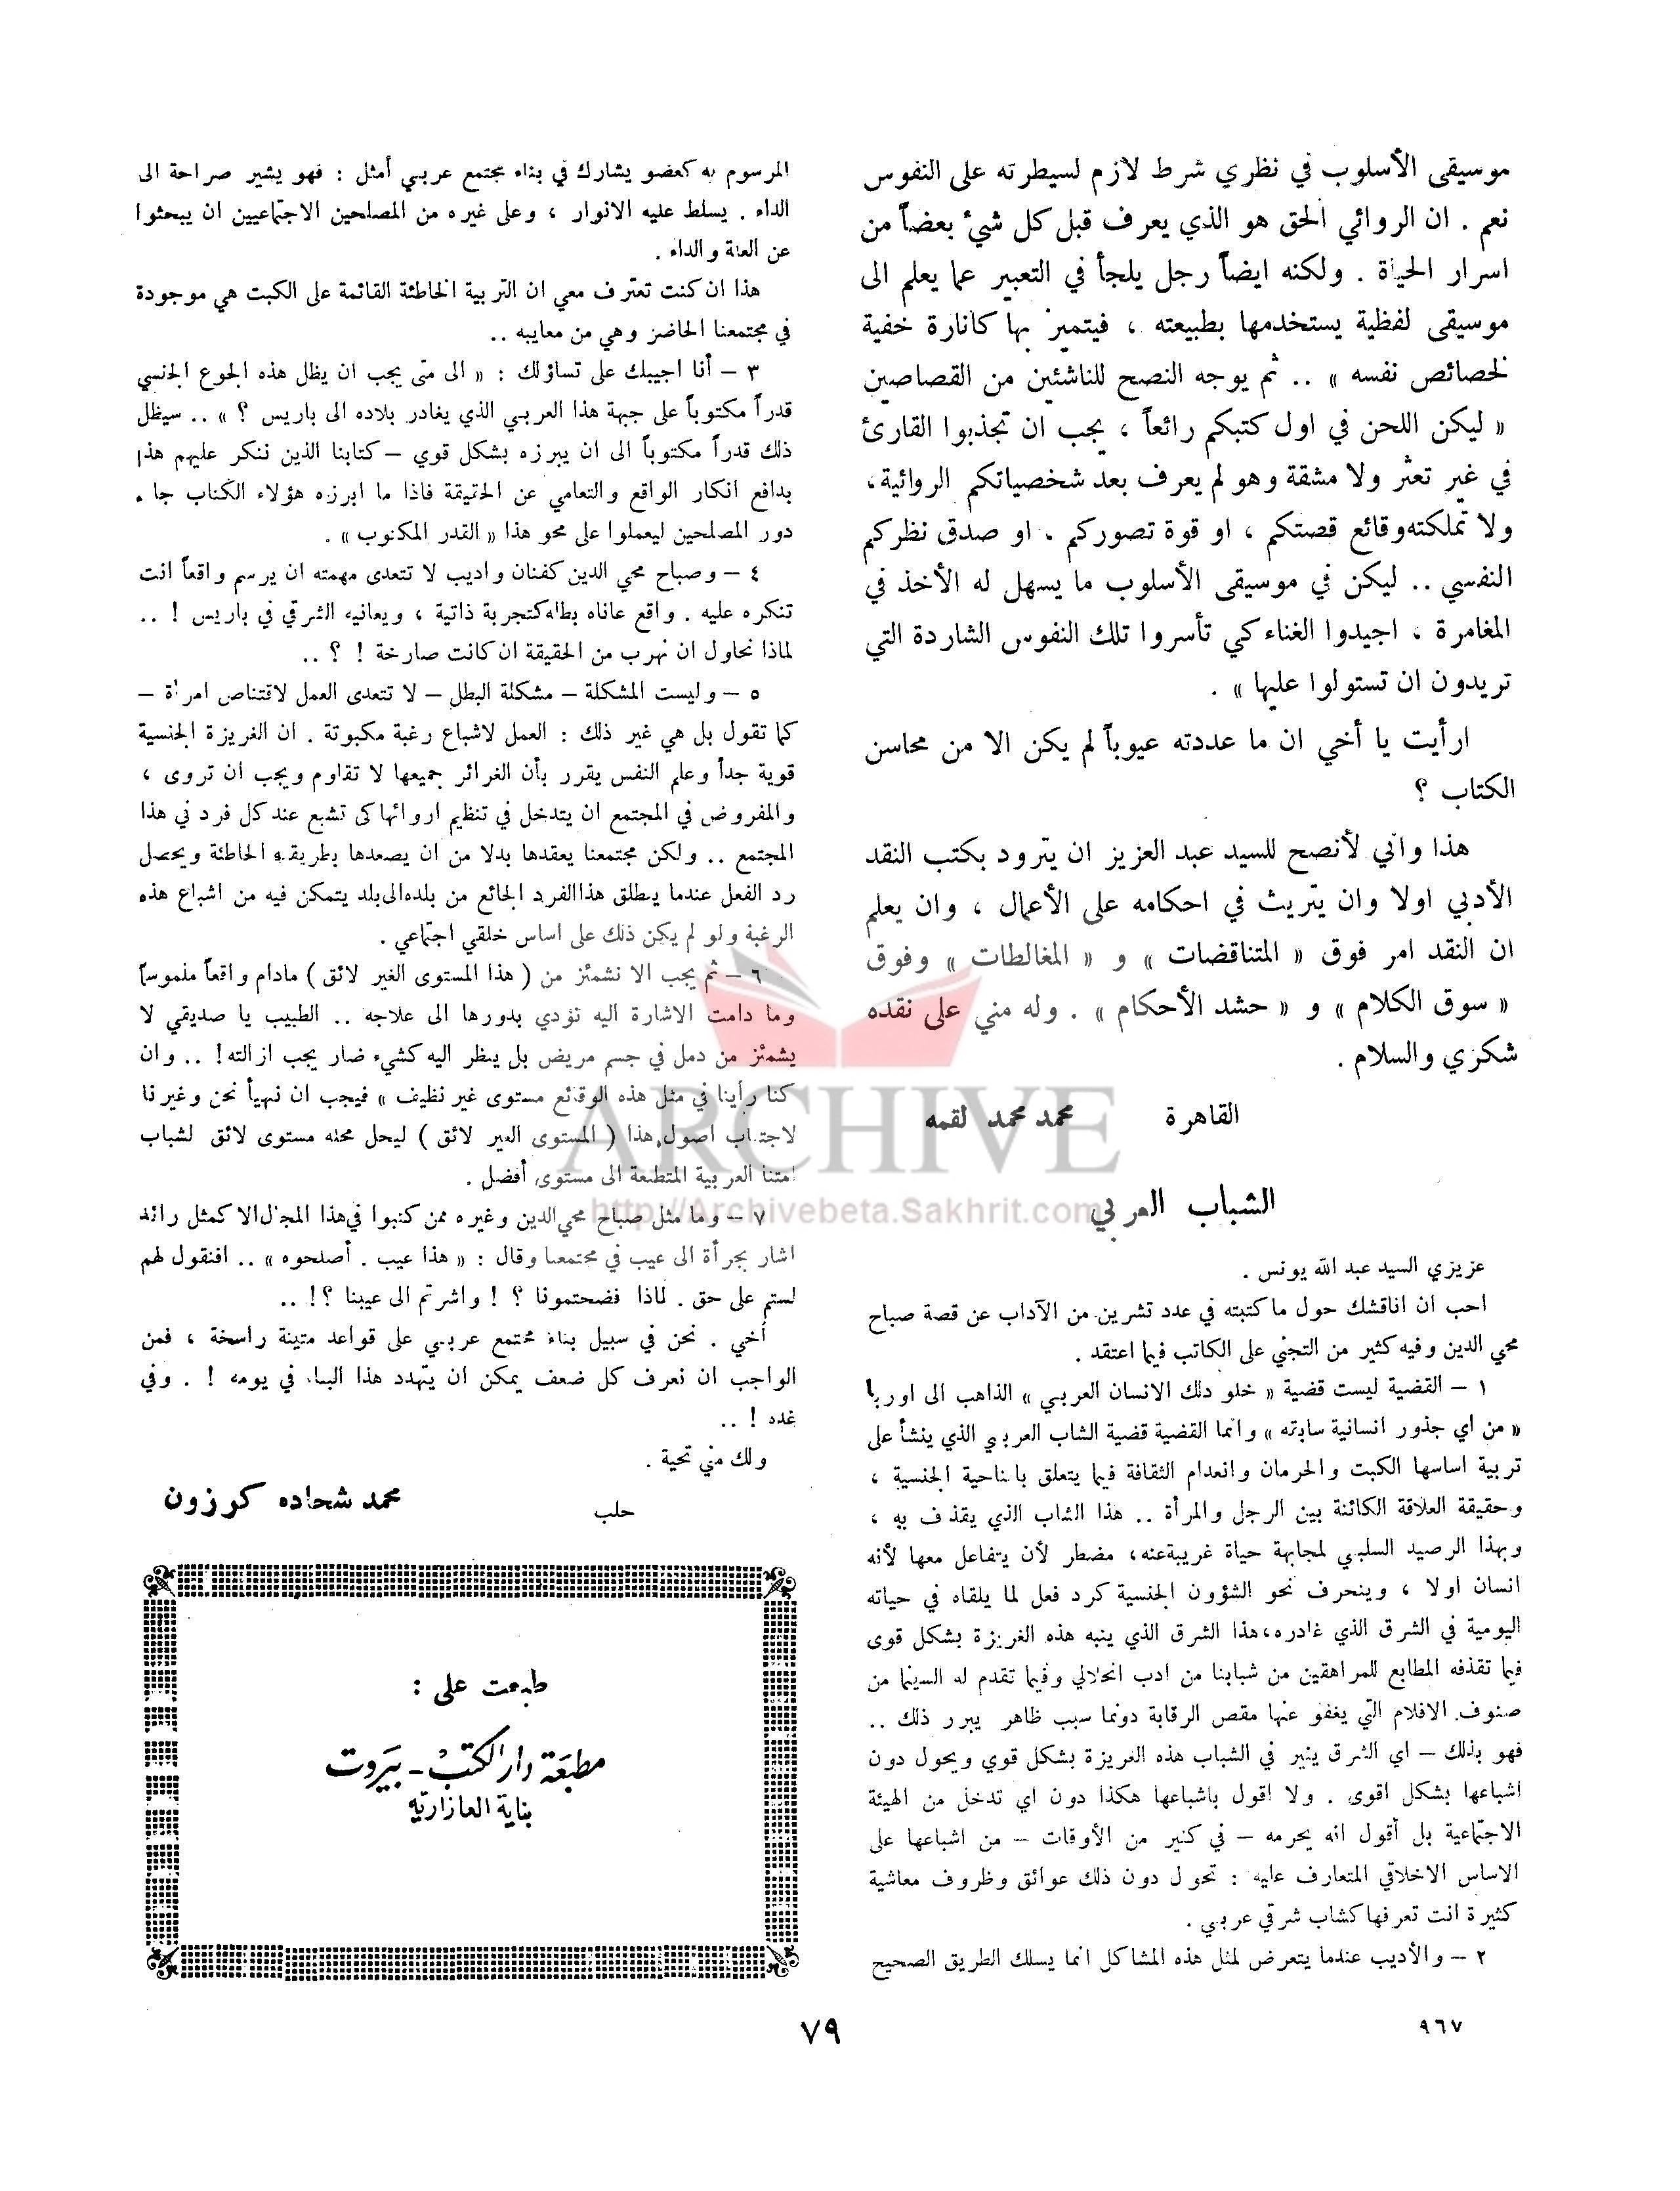 موسيقى الأسلوب في نظري شرط لازم لسيطرته على النفوس
نعم . ان الروائي الحق هو الذي يعرف قبل كل شيٴ بعضاً من
اسرار الحياة . ولكنه ايضاً رجل يلجأ في التعبير عما يعلم الى
موسيقى لفظية يستخدمها بطبيعته ، فيتميز بها كانارة خفية
لخصائص نفسه » .. ثم يوجه النصح للناشئين من القصاصين
« ليكن اللحن في اول كتبكم رائعاً ، يجب ان تجذبوا القارئ
في غير تعثر ولا مشقة وهو لم يعرف بعد شخصياتكم الروائية،
ولا تملكته وقائع قصتكم ، او قوة تصوركم . او صدق نظركم
النفسي .. ليكن في موسيقى الأسلوب ما يسهل له الأخذ في
المغامرة ، اجيدوا الغناء كي تأسروا تلك النفوس الشاردة التي
تريدون ان تستولوا عليها » .
ارأيت يا أخي ان ما عددته عيوباً لم يكن الا من محاسن
الكتاب ؟
هذا واني لأنصح للسيد عبد العزيز ان يترود بكتب النقد
الأدبي اولا وان يتريث في احكامه على الأعمال ، وان يعلم
ان النقد امر فوق « المتناقضات » و « المغالطات » وفوق
« سوق الكلام » و « حشد الأحكام » . وله مني على نقده
شكري والسلام .
القاهرة محمد محمد لقمه
الشباب العربي
عزيزي السيد عبد الله يونس .
احب ان اناقشك حول ما كتبته في عدد تشرين من الآداب عن قصة صباح
محي الدين وفيه كثير من التجني على الكاتب فيما اعتقد .
١ – القضية ليست قضية « خلو ذلك الانسان العربي » الذاهب الى اوربا
« من اي جذور انسانية سابقة » وانما القضية قضية الشاب العربي الذي ينشأ على
تربية اساسها الكبت والحرمان وانعدام الثقافة فيما يتعلق بالناحية الجنسية ،
وحقيقة العلاقة الكائنة بين الرجل والمرأة .. هذا الشاب الذي يقذف به ،
وبهذا الرصيد السلبي لمجابهة حياة غريبة عنه، مضطر لأن يتفاعل معها لأنه
انسان اولا ، وينحرف نحو الشؤون الجنسية كرد فعل لما يلقاه في حياته
اليومية في الشرق الذي غادره، هذا الشرق الذي ينبه هذه الغريزة بشكل قوى
فيما تقذفه المطابع للمراهقين من شبابنا من ادب انحلالي وفيما تقدم له السينما من
صنوف الافلام التي يغفو عنها مقص الرقابة دونما سبب ظاهر يبرر ذلك ..
فهو بذلك – اي الشرق يثير في الشباب هذه الغريزة بشكل قوي ويحول دون
اشباعها بشكل اقوى . ولا اقول باشباعها هكذا دون اي تدخل من الهيئة
الاجتماعية بل أقول انه يحرمه – في كثير من الأوقات – من اشباعها على
الاساس الاخلاقي المتعارف عليه : تحول دون ذلك عوائق وظروف معاشية
كثيرة انت تعرفها كشاب شرقي عربي .
٢ – والأديب عندما يتعرض لمثل هذه المشاكل انما يسلك الطريق الصحيح
المرسوم به كعضو يشارك في بناء مجتمع عربي أمثل : فهو يشير صراحة الى
الداء . يسلط عليه الانوار ، وعلى غيره من المصلحين الاجتماعيين ان يبحثوا
عن العلة والداء .
هذا ان كنت تعترف معي ان التربية الخاطئة القائمة على الكبت هي موجودة
في مجتمعنا الحاضر وهي من معايبه ..
٣ – أنا اجيبك على تساؤلك : « الى متى يجب ان يظل هذه الجوع الجنسي
قدراً مكتوباً على جبهة هذا العربي الذي يغادر بلاده الى باريس ؟ » .. سيظل
ذلك قدراً مكتوباً الى ان يبرزه بشكل قوي – كتابنا الذين ننكر عليهم هذا
بدافع انكار الواقع والتعامي عن الحقيقة فاذا ما ابرزه هؤلاء الكتاب جاء
دور المصلحين ليعملوا على محو هذا « القدر المكتوب » .
٤ – وصباح محي الدين كفنان واديب لا تتعدى مهمته ان يرسم واقعاً انت
تنكره عليه . واقع عاناه بطله كتجربة ذاتية ، ويعانيه الشرقي في باريس ! ..
لماذا نحاول ان نهرب من الحقيقة ان كانت صارخة ! ؟ ..
٥ – وليست المشكلة – مشكلة البطل – لا تتعدى العمل لاقتناص امرأة –
كما تقول بل هي غير ذلك : العمل لاشباع رغبة مكبوتة . ان الغريزة الجنسية
قوية جداً وعلم النفس يقرر بأن الغرائز جميعها لا تقاوم ويجب ان تروى ،
والمفروض في المجتمع ان يتدخل في تنظيم اروائها كى تشبع عند كل فرد في هذا
المجتمع .. ولكن مجتمعنا يعقدها بدلا من ان يصعدها بطريقته الخاطئة ويحصل
رد الفعل عندما ينطلق هذا الفرد الجائع من بلده الى بلد يتمكن فيه من اشباع هذه
الرغبة ولو لم يكن ذلك على اساس خلقي اجتماعي .
٦ – ثم يجب الا نشمئز من ( هذا المستوى الغير لائق ) مادام واقعاً ملموساً
وما دامت الاشارة اليه تؤدي بدورها الى علاجه .. الطبيب يا صديقي لا
يشمئز من دمل في جسم مريض بل ينظر اليه كشيء ضار يجب ازالته! .. وان
كنا رأينا في مثل هذه الوقائع مستوى غير نظيف » فيجب ان نهيأ نحن وغيرنا
لاجتناب اصول هذا ( المستوى الغير لائق ) ليحل محله مستوى لائق لشباب
امتنا العربية المتطلعة الى مستوى أفضل .
٧ – وما مثل صباح محي الدين وغيره ممن كتبوا في هذا المجال الا كمثل رائد
اشار بجرأة الى عيب في مجتمعنا وقال : « هذا عيب . أصلحوه » .. افنقول لهم
لستم على حق . لماذا فضحتمونا ؟ ! واشرتم الى عيبنا ؟! ..
أخي . نحن في سبيل بناء مجتمع عربي على قواعد متينة راسخة ، فمن
الواجب ان نعرف كل ضعف يمكن ان يتهدد هذا البناء في يومه ! . وفي
غده ! ..
ولك مني تحية .
حلب محمد شحاده كرزون
طبعت على :
مطبعة دار الكتب - بيروت
بناية العازارية
٩٦٧
٧٩
ARCHIVE
http://Archivebeta.Sakhrit.com